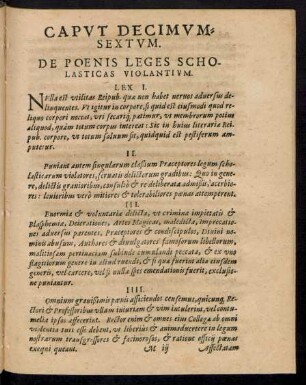 CAPVT DECIMVM-
SEXTVM.
DE POENIS LEGES SCHO-
LASTICAS VIOLANTIVM.
LEX I.
NVlla est vtilitas Reipub. qua non habet nervos adversus de-
linquentes. Vt igitur in corpore, si quid est eiusmodi quod reli-
quo corpori noceat, vri secarique patimur, vt membrorum potius
aliquod, quàm totum corpus intereat: Sic in huius literariæ Rei-
pub. corpore, vt totum salvum sit, quidquid est pestiferum am-
puterur.
II.
Puniant autem singularum classium Præceptores legum scho-
lasticarum violatores, servatis delictorum gradibus: Quo in gene-
re, delictis gravioribus, consultò & re deliberata admissis, acerbio-
res: lenioribus verò mitiores & tolerabiliores pœnæ attemperent.
III.
Enormia & voluntaria delicta, vt crimina impietatis &
Blasphemiæ, Deierationes, Artes Magicas, maledicta, imprecatio-
nes adversus parentes, Præceptores & condiscipulos, Divini no-
minis abusum, Authores & divulgatores famosorum libellorum,
malitiosam pertinaciam subinde cumulandi peccata, & ex vno
flagitiorum genere in aliud ruendi, & si qua fuerint alia eiusdem
generis, vel carcere, vel si nulla spes emendationis fuerit, exclusio-
ne puniantur.
IIII.
Omnium gravissimis pœnis afficiendos censemus, quicunq; Re-
ctori & Professoribus vllam iniuriam & vim intulerint, vel contu-
meliæ ipsos affecerint. Rector enim & omnes eius Collegæ ab omni
violentia tuti esse debent, vt liberius & animadvertere in legum
nostrarum transgressores & facinorosos, & ratione officij pœnas
exequi queant. M ij Affectatam